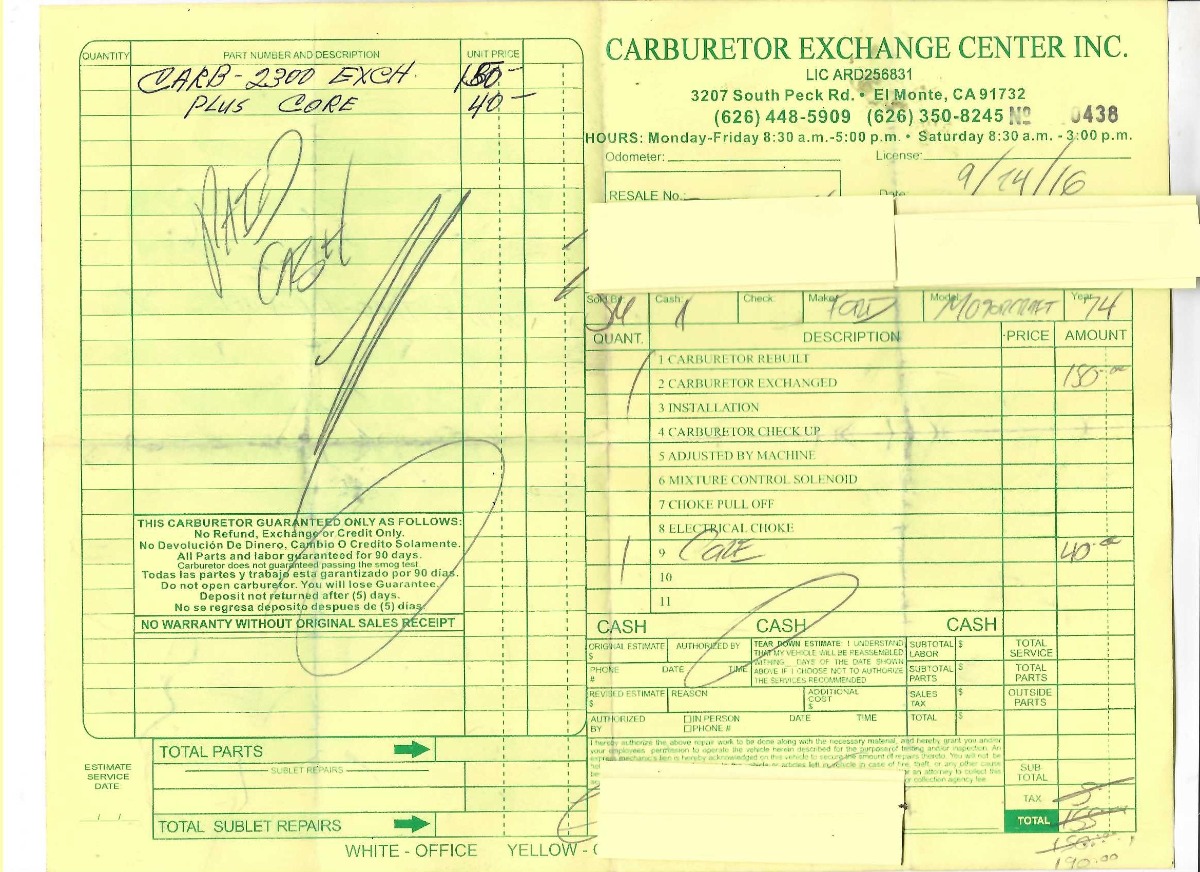 QUANTITY PART NUMBER AND DESCRIPTION UNIT PRICE
CARB-2300 EXCH. 150.-
PLUS CORE 40.-
PAID
CASH
THIS CARBURETOR GUARANTEED ONLY AS FOLLOWS:
No Refund, Exchange or Credit Only.
No Devolución De Dinero, Cambio O Credito Solamente.
All Parts and labor guaranteed for 90 days.
Carburetor does not guaranteed passing the smog test
Todas las partes y trabajo esta garantizado por 90 dias.
Do not open carburetor. You will lose Guarantee.
Deposit not returned after (5) days.
No se regresa deposito despues de (5) dias.
NO WARRANTY WITHOUT ORIGINAL SALES RECEIPT
TOTAL PARTS
SUBLET REPAIRS
ESTIMATE
SERVICE
DATE
TOTAL SUBLET REPAIRS
WHITE - OFFICE YELLOW -
CARBURETOR EXCHANGE CENTER INC.
LIC ARD256831
3207 South Peck Rd. • El Monte, CA 91732
(626) 448-5909 (626) 350-8245 Nº 0438
HOURS: Monday-Friday 8:30 a.m.-5:00 p.m. • Saturday 8:30 a.m. - 3:00 p.m.
Odometer: License:
RESALE No.: Date: 9/14/16
Sold By Cash: Check: Make: FORD Model: MOTORCRAFT Year 74
QUANT. DESCRIPTION PRICE AMOUNT
1 CARBURETOR REBUILT
2 CARBURETOR EXCHANGED 150.00
3 INSTALLATION
4 CARBURETOR CHECK UP
5 ADJUSTED BY MACHINE
6 MIXTURE CONTROL SOLENOID
7 CHOKE PULL OFF
8 ELECTRICAL CHOKE
1 9 CORE 40.00
10
11
CASH CASH CASH
ORIGINAL ESTIMATE $ AUTHORIZED BY
PHONE # DATE TIME
TEAR DOWN ESTIMATE: I UNDERSTAND
THAT MY VEHICLE WILL BE REASSEMBLED
WITHING DAYS OF THE DATE SHOWN
ABOVE IF I CHOOSE NOT TO AUTHORIZE
THE SERVICES RECOMMENDED
SUBTOTAL LABOR $ TOTAL SERVICE
SUBTOTAL PARTS $ TOTAL PARTS
REVISED ESTIMATE $ REASON ADDITIONAL COST $ SALES TAX $ OUTSIDE PARTS
AUTHORIZED BY IN PERSON PHONE # DATE TIME TOTAL $
I hereby authorize the above repair work to be done along with the necessary material, and hereby grant you and/or
your employees permission to operate the vehicle herein described for the purpose of testing and/or inspection. An
express mechanic's lien is hereby acknowledged on this vehicle to secure the amount of repairs thereto. You will not be
vehicle or articles left in vehicle in case of fire, theft, or any other cause
or an attorney to collect this
collection agency fee.
SUB TOTAL
TAX
TOTAL 155
150.00
190.00